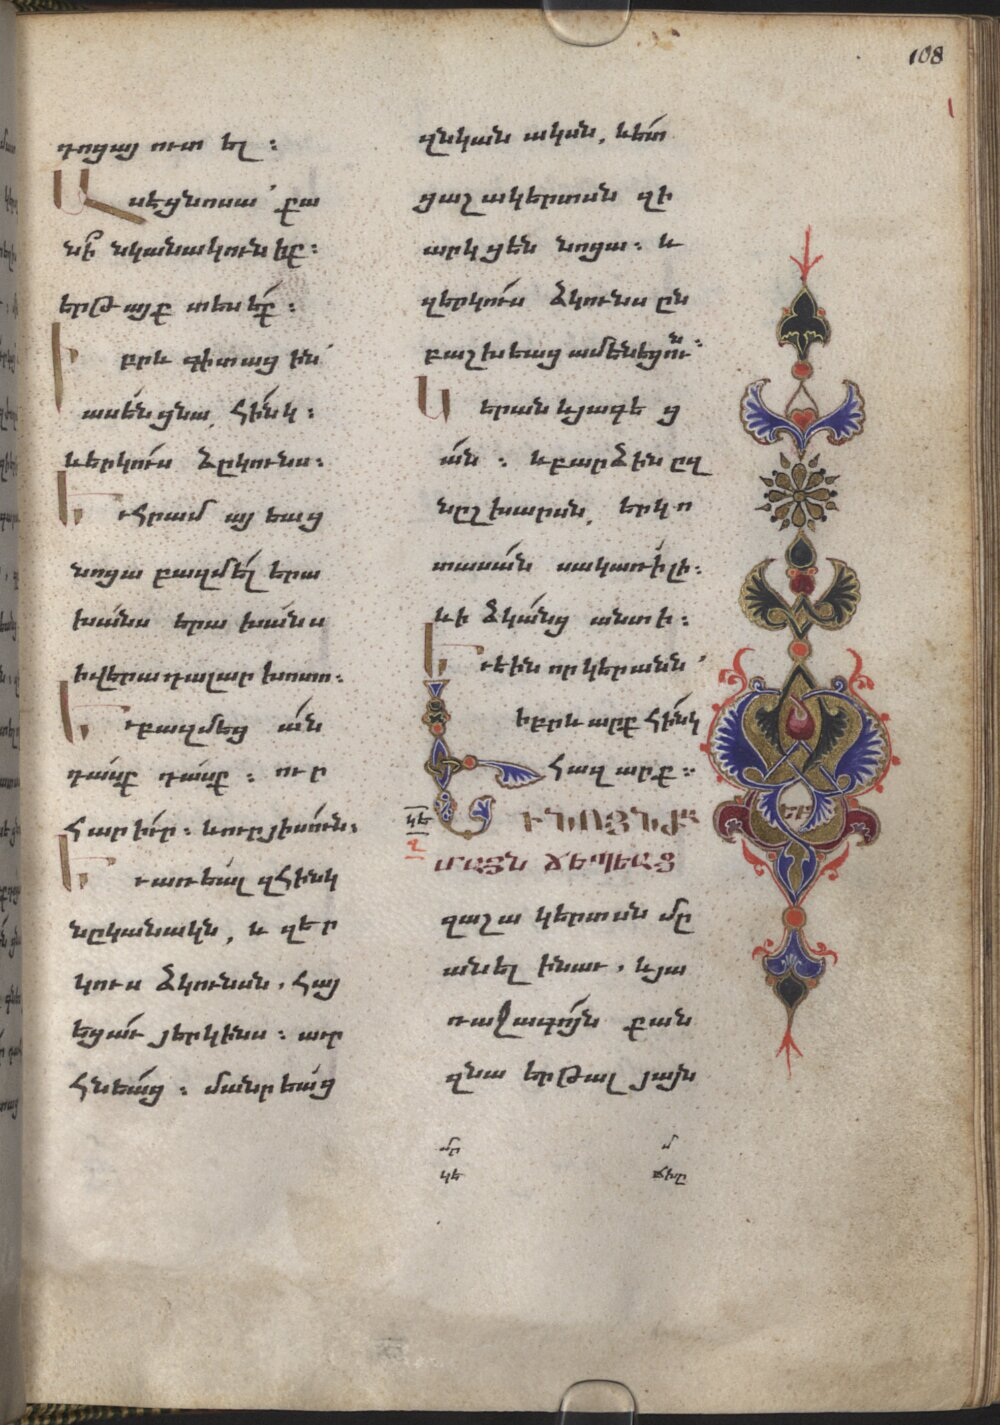 108
1
դոցայ ուտ ել :
Ասէ ցնոսա՝ քա
նի՞ նկանակ ունիք :
երթայք տեսէք :
Իբրև գիտացին՝
ասեն ցնա, հինգ :
և երկուս ձըկունս :
Եւ հրամայեաց
նոցա բազմել երա
խանս երախանս
ի վերա դալար խոտո :
Եւ բազմեց ան
դասք դասք : ուր
հարիւր : և ուր յիսուն :
Եւ առեալ զհինգ
նըկանակն, և զեր
կուս ձկունսն, հայ
եցաւ յերկինս : աւր
հնեաց : մանրեաց
զնկանակսն, և ետ
ցաշակերտսն զի
արկցեն նոցա : և
զերկուս ձկունսն ըն
բաշխեաց ամենեցուն :
Կերան և յագեց
ան : և բարձին ըզ
նըշխարսն, երկո
տասան սակառի լի :
և ի ձկանց անտի :
Եւ էին որ կերանն՝
իբրև արք հինգ
հազարք :
կե
Եւ ՆՈՅՆԺԱ
ՄԱՅՆ ՃԵՊԵԱՑ
զաշակերտսն մը
տանել ի նաւ, և յա
ռաջագոյն քան
զնա երթալ յայն
մր
կե
մ
ճխը